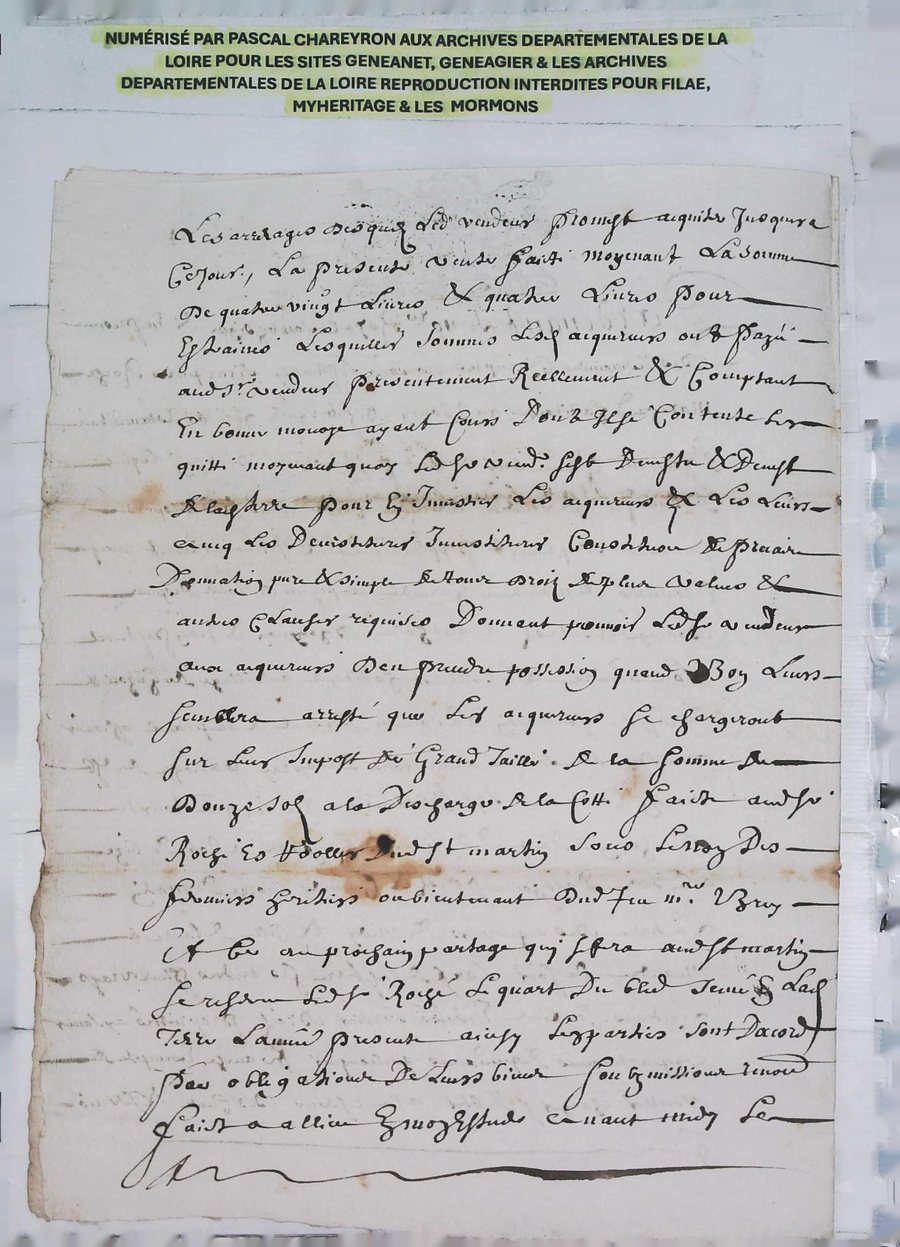 NUMÉRISÉ PAR PASCAL CHAREYRON AUX ARCHIVES DEPARTEMENTALES DE LA
LOIRE POUR LES SITES GENEANET, GENEAGIER & LES ARCHIVES
DEPARTEMENTALES DE LA LOIRE REPRODUCTION INTERDITES POUR FILAE,
MYHERITAGE & LES MORMONS
Les arrerages desquelz led vendeur promet aquiter Jusques a
Ce Jour, La presente vente faite moyenant La somme
De quatre vingt Livres & quatre Livres pour
Estraines Lesquelles sommes Lesd aquereurs ont payé
aud Sr vendeur presentement Reellement & Comptant
En bonne monoye ayant Cours Dont Il se Contente Les
quitte moyenant quoy Led Sr vend. sest Demstu & Demest
De lad terre pour En Investir Les aquereurs & Les Leurs
avec Les Devestitures Investitures Constitution de precaire
Donnation pure & simple de toute Droit de plus values &
autres Clauses requises Donnant pouvoir Led Sr vendeur
aux aquereurs D'en prendre possession quand Bon Leurs
semblera arresté que Les aquereurs se chargeront
sur Leurs Impost de Grand Taille de la somme de
Douze Solz a la Descharge de la Cotte faicte aud Sr
Roché Es Rolles Dud St martin sous Le nom Des
fermiers heritiers ou bientenant Dud feu mre Brey
Et au prochain partage qui se fera aud St martin
se reserve Led Sr Roché Le quart Du bled semé En Lad
Terre Lannée presente ainsy Les parties sont Dacord
par obligations De Leurs biens soubmissions renond
faict a allieu En mon Estude avant midy Le